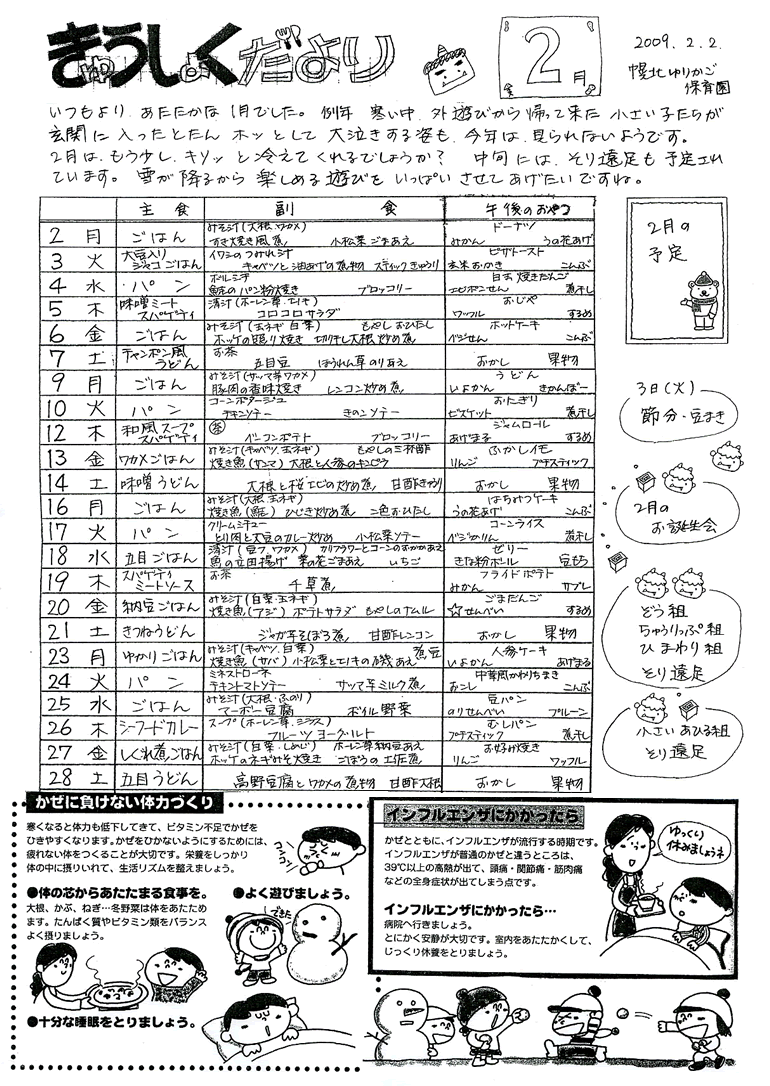 きゅうしょくだより
2月
2009.2.2.
幌北ゆりかご
保育園
いつもより、あたたかな1月でした。例年 寒い中、外遊びから帰って来た 小さい子たちが
玄関に入ったとたん ホッとして 大泣きする姿も、今年は、見られないようです。
2月は、もう少し、キリッと冷えてくれるでしょうか? 中旬には、そり遠足も予定され
ています。雪が降るから楽しめる遊びを いっぱいさせてあげたいですね。
主食 副食 午後のおやつ
2 月 ごはん みそ汁(大根、ワカメ) すき焼き風煮 小松菜ごまあえ ドーナツ みかん うの花あげ
3 火 大豆入りジャコごはん イワシのつみれ汁 キャベツと油あげの煮物 スティックきゅうり ピザトースト 玄米おかき こんぶ
4 水 パン ボルシチ 鮭のパン粉焼き ブロッコリー 焼きだんご エビポンせん 煮干し
5 木 味噌ミートスパゲティ 清汁(ホーレン草、エノキ) コロコロサラダ おじや ワッフル するめ
6 金 ごはん みそ汁(玉ネギ 白菜) もやしおひたし ホッケの照り焼き 切り干し大根炒め煮 ホットケーキ ベジせん こんぶ
7 土 チャンポン風うどん お茶 五目豆 ほうれん草のりあえ おかし 果物
9 月 ごはん みそ汁(サツマ芋ワカメ) 豚肉の香味焼き レンコン炒め煮 うどん いよかん きかんぼー
10 火 パン コーンポタージュ チキンソテー きのこソテー おにぎり ビスケット 煮干し
12 木 和風スープスパゲティ 茶 ベーコンポテト ブロッコリー ジャムロール あげ玉子 するめ
13 金 ワカメごはん みそ汁(キャベツ、玉ネギ) もやしの三杯酢 焼き魚(サンマ) 大根と人参のキンピラ ふかしイモ りんご プチスティック
14 土 味噌うどん 大根と桜エビの炒め煮 甘酢きゅうり おかし 果物
16 月 ごはん みそ汁(大根 玉ネギ) 焼き魚(鮭) ひじき炒め煮 二色おひたし はちみつケーキ うの花あげ こんぶ
17 火 パン クリームシチュー とり肉と大豆のカレー炒め 小松菜ソテー コーンライス ベジかりん 煮干し
18 水 五目ごはん 清汁(豆フ、ワカメ) カリフラワーとコーンのおかかあえ 魚の立田揚げ 菜の花ごまあえ いちご ゼリー きな粉ボール 豆もち
19 木 スパゲティミートソース お茶 千草煮 フライドポテト みかん サブレ
20 金 納豆ごはん みそ汁(白菜・玉ネギ) 焼き魚(アジ) ポテトサラダ もやしのナムル ごまだんご ☆せんべい するめ
21 土 きつねうどん ジャガ芋そぼろ煮 甘酢レンコン おかし 果物
23 月 ゆかりごはん みそ汁(キャベツ、白菜) 煮豆 焼き魚(サバ) 小松菜とエノキの磯あえ 人参ケーキ いよかん あげまる
24 火 パン ミネストローネ チキントマトソテー サツマ芋ミルク煮 中華風かわりちまき おこし こんぶ
25 水 ごはん みそ汁(大根・ふのり) マーボー豆腐 ボイル野菜 豆パン のりせんべい プルーン
26 木 シーフードカレー スープ(ホーレン草、シラス) フルーツヨーグルト むしパン プチスティック 煮干し
27 金 しぐれ煮ごはん みそ汁(白菜、しめじ) ホーレン草納豆あえ ホッケのネギみそ焼き ごぼうの土佐煮 お好み焼き りんご ワッフル
28 土 五目うどん 高野豆腐とワカメの煮物 甘酢大根 おかし 果物
2月の
予定
3日(火)
節分・豆まき
2月の
お誕生会
ぞう組
ちゅうりっぷ組
ひまわり組
そり遠足
小さいあひる組
そり遠足
かぜに負けない体力づくり
寒くなると体力も低下してきて、ビタミン不足でかぜを
ひきやすくなります。かぜをひかないようにするためには、
疲れない体をつくることが大切です。栄養をしっかり
体の中に摂りいれて、生活リズムを整えましょう。
●体の芯からあたたまる食事を。
大根、かぶ、ねぎ…冬野菜は体をあたため
ます。たんぱく質やビタミン類をバランス
よく摂りましょう。
●よく遊びましょう。
できた
●十分な睡眠をとりましょう。
インフルエンザにかかったら
かぜとともに、インフルエンザが流行する時期です。
インフルエンザが普通のかぜと違うところは、
39℃以上の高熱が出て、頭痛・関節痛・筋肉痛
などの全身症状が出てしまう点です。
インフルエンザにかかったら…
病院へ行きましょう。
とにかく安静が大切です。室内をあたたかくして、
じっくり休養をとりましょう。
ゆっくり
休みましょうネ